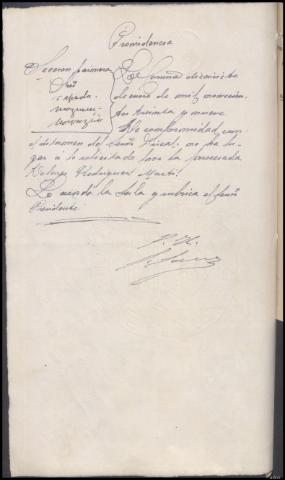 Providencia
Seccion primera
Sres
Cepeda
La Coruña diecisiete
de enero de mil novecien
tos treinta y nueve
De conformidad con
el dictamen del señor Fiscal, no ha lu
gar a lo solicitado por la procesada
Dolores Rodriguez Martil
Lo acordó la Sala y rubrica el señor
Presidente